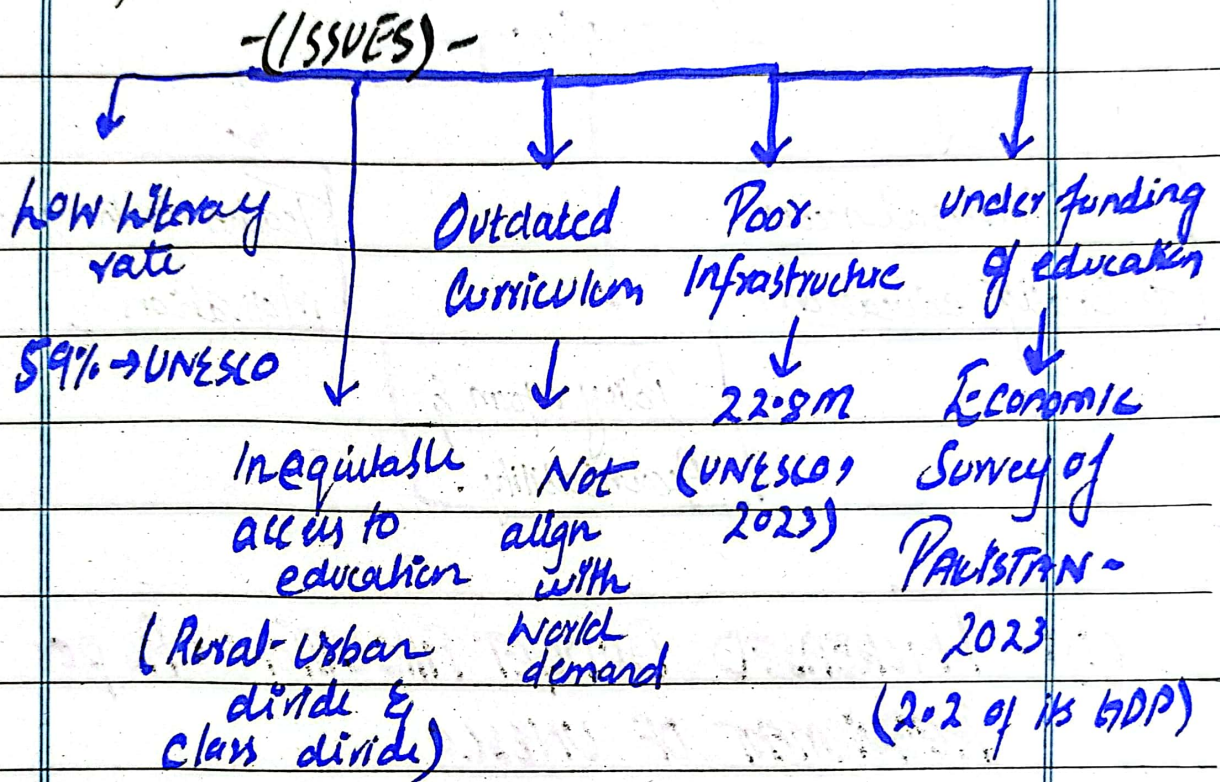 -(ISSUES)-
Low Literacy
rate
59% → UNESCO
Inequitable
access to
education
(Rural-Urban
divide &
Class divide)
Outdated
Curriculum
Not
align
with
World
demand
Poor
Infrastructure
22.8M
(UNESCO,
2023)
Under funding
of education
Economic
Survey of
PAKISTAN-
2023
(2.2 of its GDP)